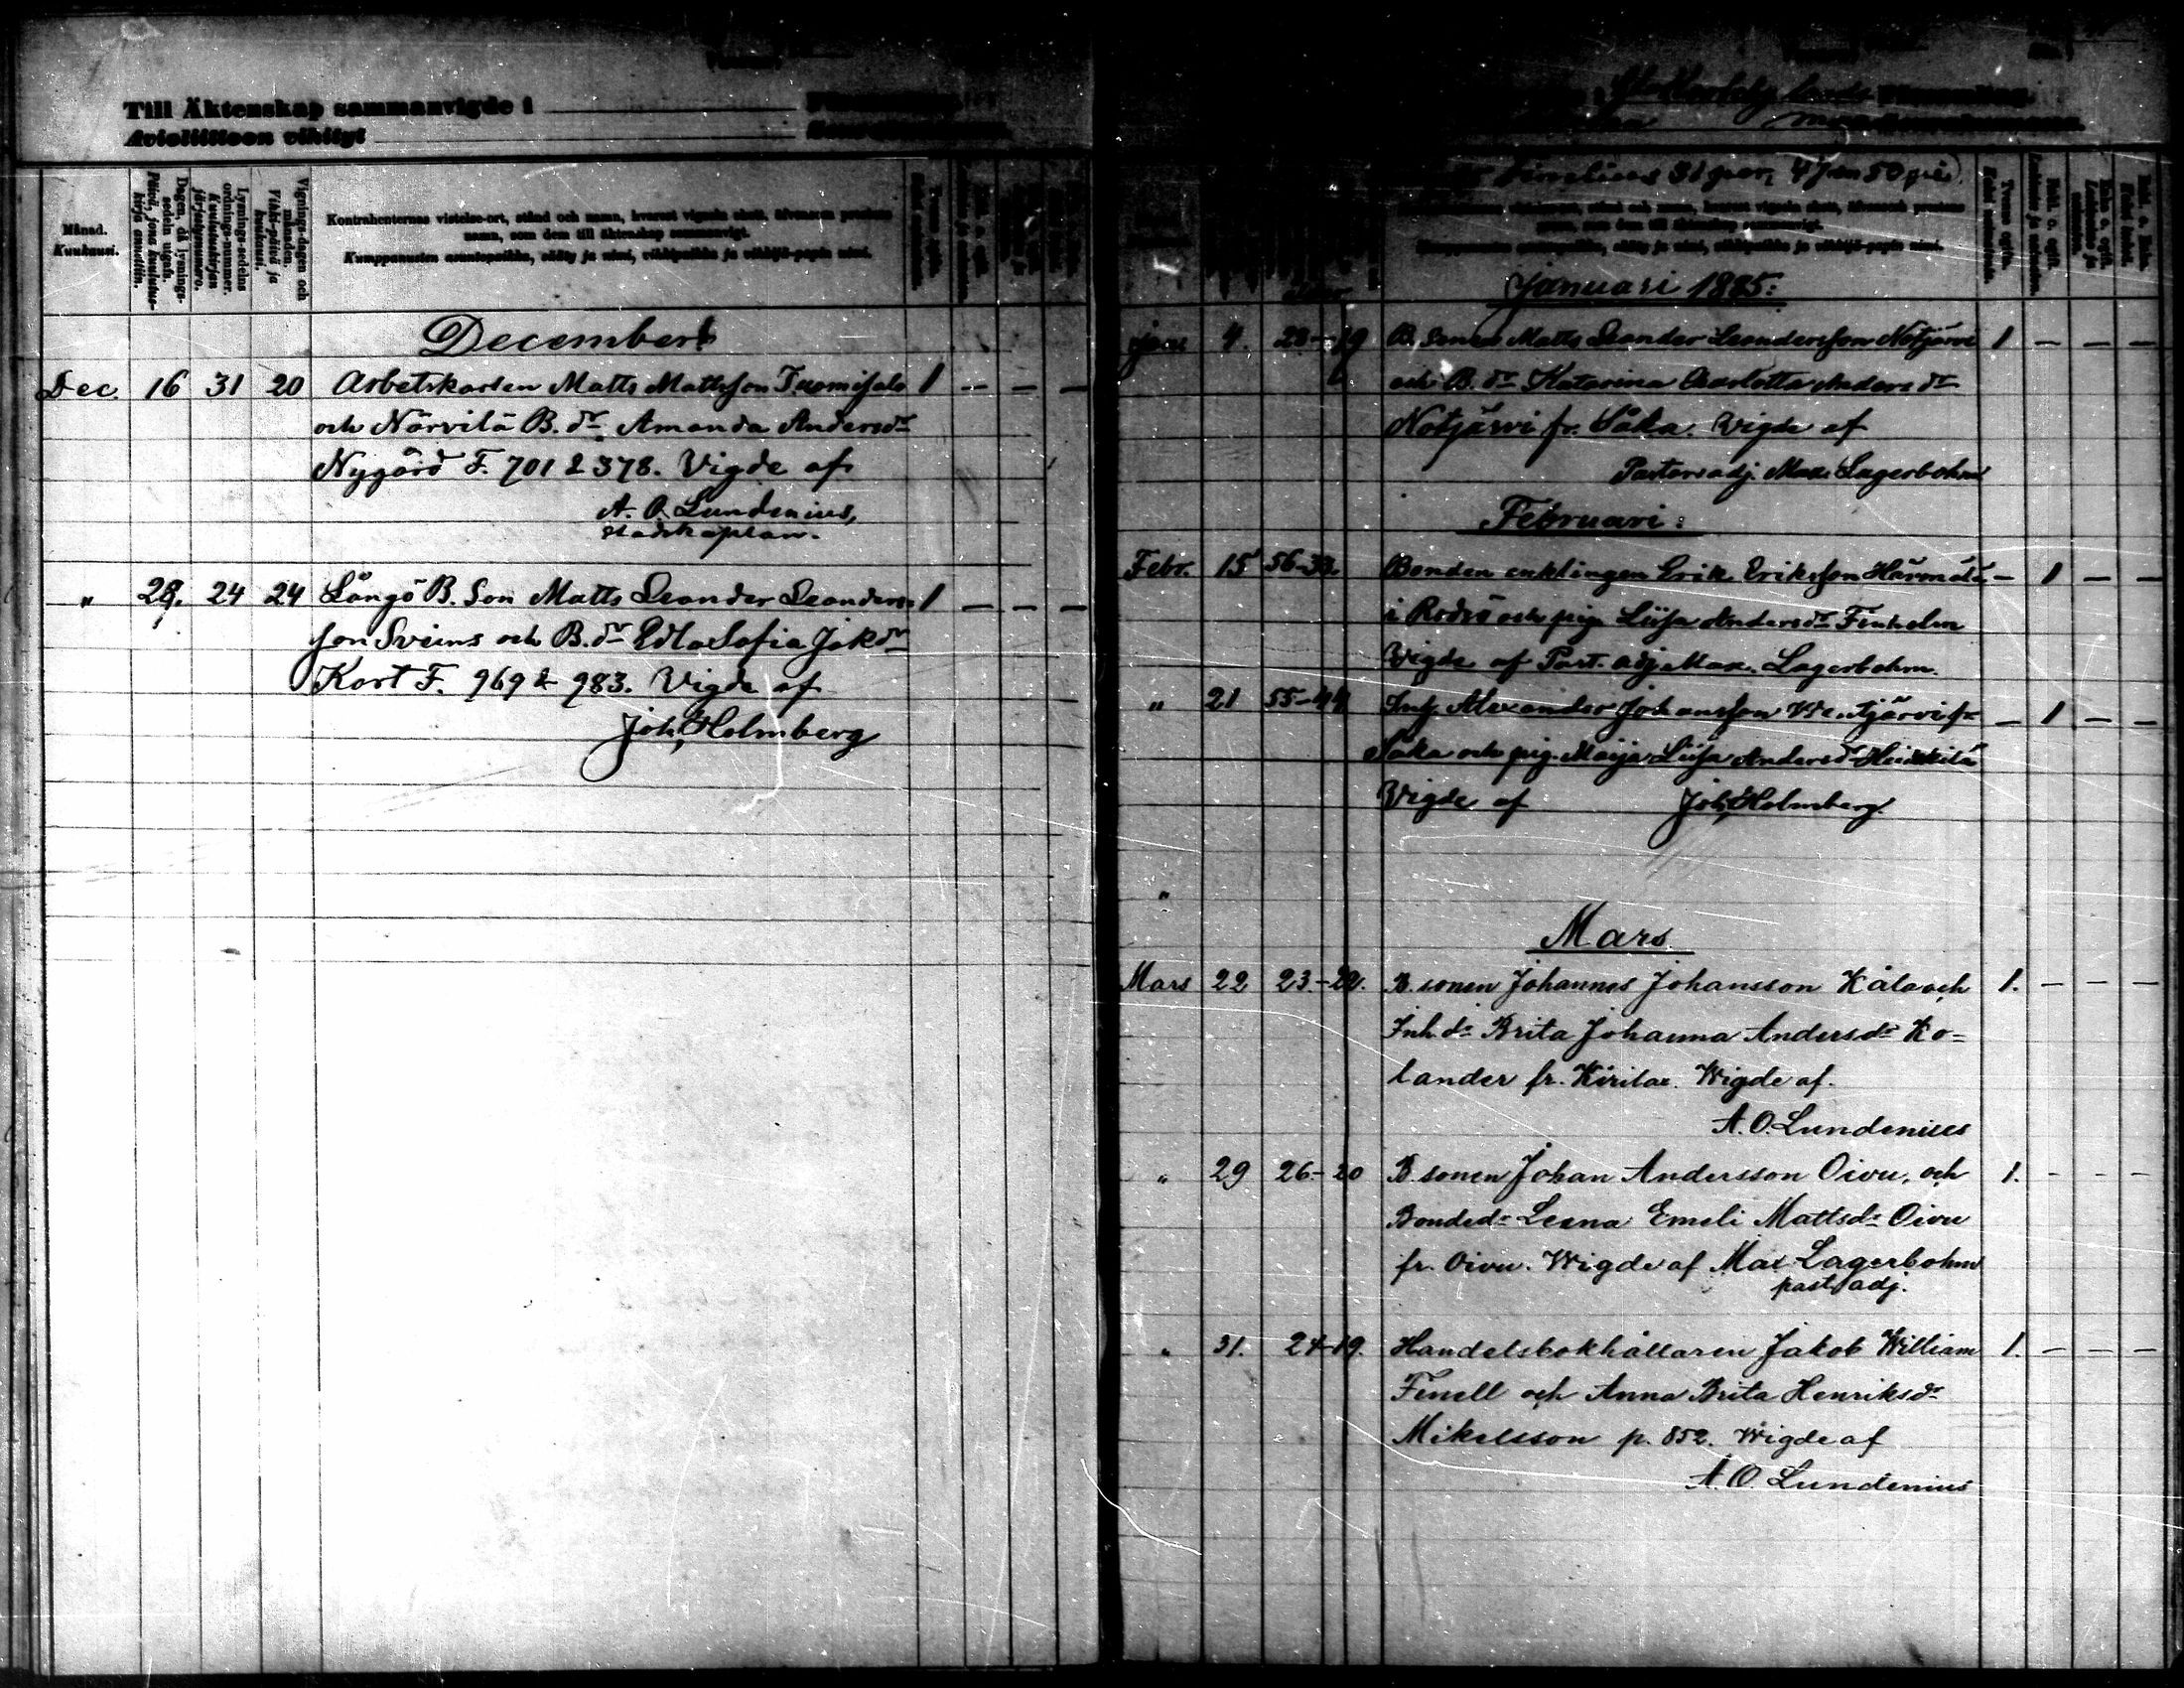 Till Äktenskap sammanvigde i
Avioliittoon vihityt
Månad.
Kuukausi.
Dagen, då lysnings-
sedeln utgafs.
Päivä, jona kuulutus-
kirja annettiin.
Lysnings-sedelns
ordnings-nummer.
Kuulutuskirjan
järjestysnumero.
Vignings-dagen och
månaden.
Vihki-päivä ja
kuukausi.
Kontrahenternas vistelse-ort, stånd och namn, hvarest vigseln skett, äfvensom prestens
namn, som dem till äktenskap sammanvigt.
Kumppanusten asuntopaikka, sääty ja nimi, vihkipaikka ja vihkijä-papin nimi.
December
Dec. 16 31 20 Arbetskarlen Matts Mattsson Tuomisalo 1 – – –
och Närvilä B.dr. Amanda Andersdr
Nygård F. 701 & 378. Vigde af
A. O. Lundenius,
stadskaplan.
" 28. 24 24 Långö B. Son Matts Leander Leanders- 1 – – –
son Sveins och B.dr Edla Sofia Jakdr
Kort F. 969 & 983. Vigde af
Joh. Holmberg
31 par, 4 50
Januari 1885:
Jan 4. 28–19 B. Sonen Matts Leander Leandersson Notjärvi 1 – – –
och B.dr Katarina Charlotta Andersdr
Notjärvi fr. Såka. Vigde af
Pastorsadj. Max. Lagerbohm
Februari:
Febr. 15 56–38. Bonden enklingen Erik Eriksson Härmälä – 1 – –
i Rödsö och pig. Liisa Andersdr Finholm
Vigde af Past. adj. Max. Lagerbohm.
" 21 55–44 Inh. Alexander Johansson Wentjärvi fr – 1 – –
Såka och pig. Maija Liisa Andersdr Heikkilä
Vigde af Joh. Holmberg.
"
Mars.
Mars 22 23.–22. B. sonen Johannes Johansson Kåla och 1. – – –
Inh.dr Brita Johanna Andersdr Ko=
lander fr. Kirilax. Wigde af.
A. O. Lundenius
" 29 26–20 B. sonen Johan Andersson Oivu, och 1. – – –
Bondedr Leena Emeli Mattsdr Oivu
fr. Oivu. Wigde af Max Lagerbohm
past. adj.
" 31. 24–19. Handelsbokhållaren Jakob William 1. – – –
Finell och Anna Brita Henriksdr
Mikelsson p. 852. Wigde af
A. O. Lundenius